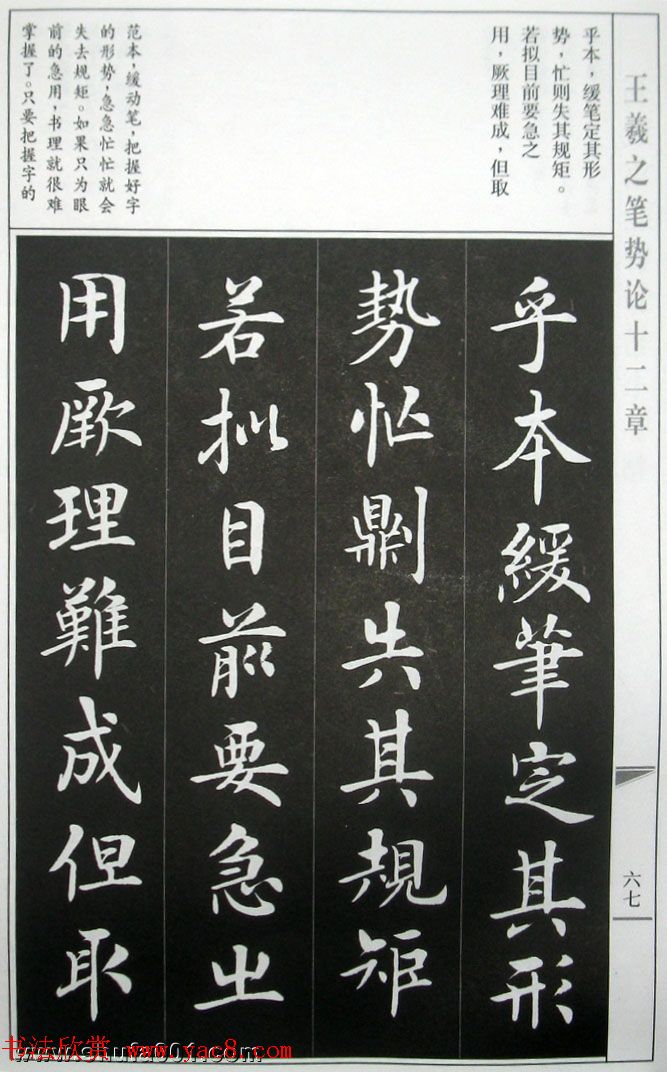 王羲之笔势论十二章
六七
乎本，缓笔定其形
势，忙则失其规矩。
若拟目前要急之
用，厥理难成，但取
范本，缓动笔，把握好字
的形势，急急忙忙就会
失去规矩。如果只为眼
前的急用，书理就很难
掌握了。只要把握字的
乎本緩筆定其形
勢忙則失其規矩
若拟目前要急之
用厥理難成但取
书法欣赏 www.yac8.com